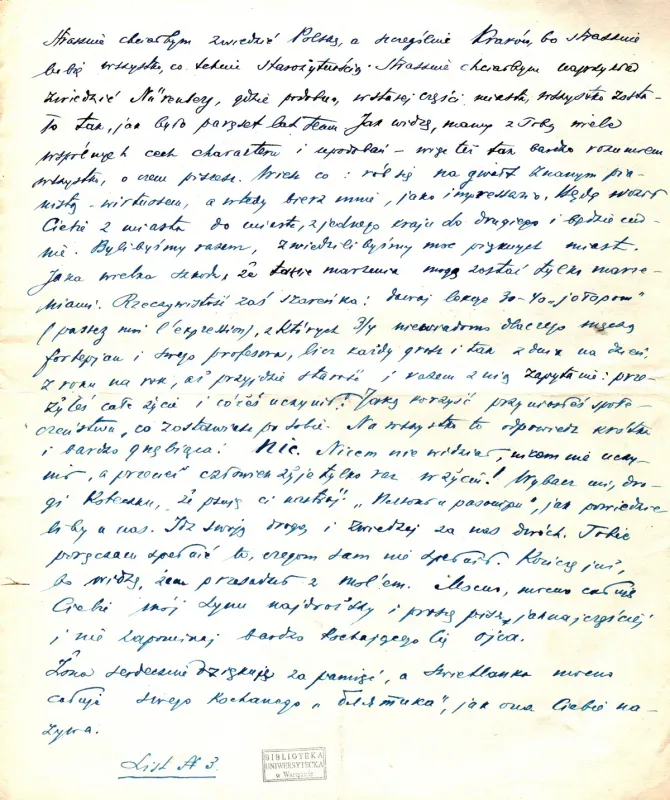 Strasznie chciałbym zwiedzić Polskę, a szczególnie Kraków, bo strasznie
lubię wszystko, co tchnie starożytnością. Strasznie chciałbym naprzykład
zwiedzić Nürenberg, gdzie podobno, w starej części miasta, wszystko zosta-
ło tak, jak było paręset lat temu. Jak widzę, mamy z Tobą wiele
wspólnych cech charakteru i upodobań – więc też tak bardzo rozumiem
wszystko, o czem piszesz. Wiesz co: rób się na gwałt znanym pia-
nistą-wirtuozem, a wtedy bierz mnie, jako impressario. Będę woził
Ciebie z miasta do miasta, z jednego kraju do drugiego i będzie cud-
nie. Bylibyśmy razem, zwiedzilibyśmy moc pięknych miast.
Jaka wielka szkoda, że takie marzenia mogą zostać tylko marze-
niami. Rzeczywistość zaś szareńka: dawaj lekcje 30-40 „jołopom”
(passez moi l'expression), z których 3/4 niewiadomo dlaczego męczą
fortepjan i swego profesora, licz każdy grosz i tak z dnia na dzień,
z roku na rok, aż przyjdzie starość i razem z nią zapytanie: prze-
żyłeś całe życie i cóżeś uczynił? Jaką korzyść przyniosłeś społe-
czeństwu, co zostawiasz po sobie. Na wszystko to odpowiedź krótka
i bardzo gnębiąca: Nic. Niczem nie widział, nikom nie uczy-
nił, a przecież człowiek żyje tylko raz w życiu! Wybacz mi, dro-
gi Koteczku, że psuję ci nastrój. jak powiedzie-
liby u nas. Idź swoją drogą i zwiedzaj za nas dwóch. Tobie
poręczam spełnić to, czegom sam nie spełnił. Kończę już,
bo widzę, żem przesadził z Mocno, mocno całuję
Ciebie mój synu najdroższy i proszę pisz, jaknajczęściej
i nie zapominaj bardzo kochającego Cię ojca.
Żona serdecznie dziękuję za pamięć, a Swietłanka mocno
całuje swego kochanego jak ona Ciebie na-
zywa.
List № 3.
BIBLIOTEKA
UNIWERSYTECKA
w Warszawie